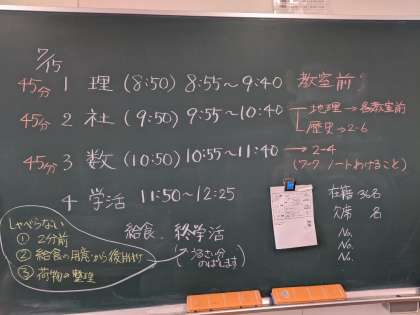 7/15
45分 1 理 (8:50) 8:55〜9:40 教室前
45分 2 社 (9:50) 9:55〜10:40 地理→各教室前
歴史→2-6
45分 3 数 (10:50) 10:55〜11:40 →2-4
(ワーク ノートわけること)
4 学活 11:50〜12:25
給食、終学活
(うるさい分のばします)
しゃべらない
① 2分前
② 給食の用意から後片付け
③ 荷物の整理
在籍 36名
欠席 名
No.
No.
No.